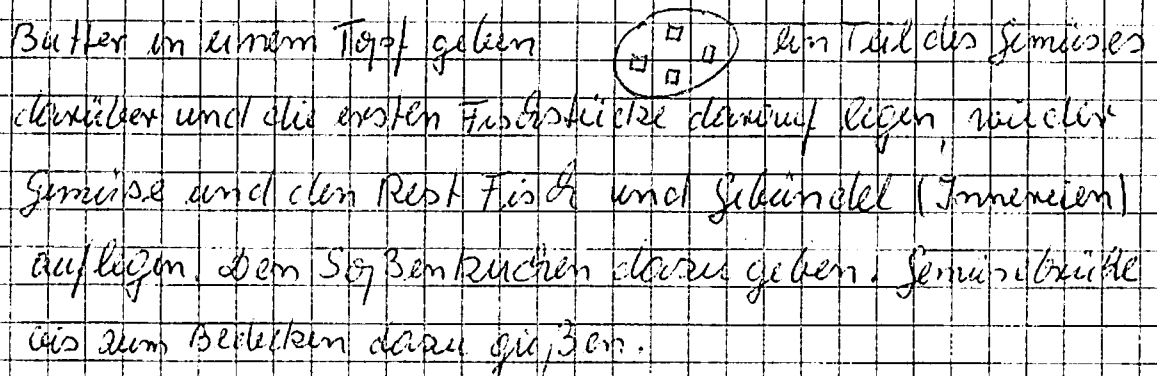 Butter in einem Topf geben ein Teil des Gemüses
darüber und die ersten Fischstücke darauf legen, wieder
Gemüse und den Rest Fisch und Gebündel (Innereien)
auflegen. Den Soßenkuchen dazu geben. Gemüsebrühe
bis zum Bedecken dazu gießen.